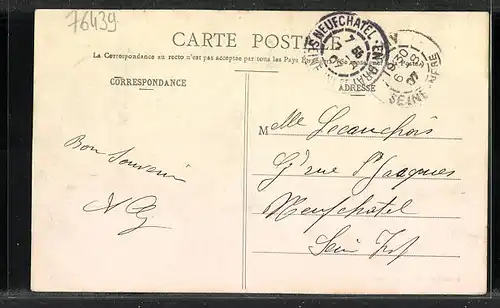 76439
CARTE POSTALE
La Correspondance au recto n'est pas acceptée par tous les Pays
NEUFCHATEL-EN-BRAY
SEINE-INFRE
CORRESPONDANCE
ADRESSE
Bon Souvenir
Melle Lecauchois
Gde rue St Jacques
Neufchatel
Sein Infre